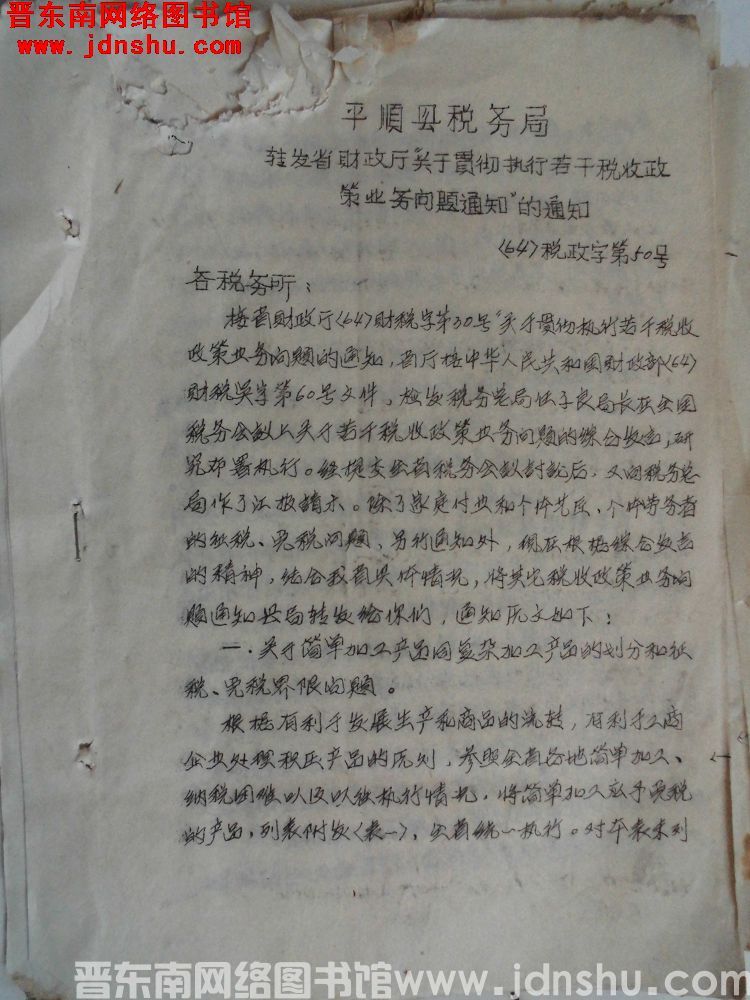 晋东南网络图书馆
www.jdnshu.com
平順县税务局
轉发省财政厅“关于贯彻执行若干税收政
策业务问题通知”的通知
〈64〉税政字第50号
各税务所：
接省财政厅〈64〉财税字第30号“关于贯彻执行若干税收
政策业务问题的通知，省厅据中华人民共和国财政部〈64〉
财税吴字第60号文件，检发税务总局任子良局长在全国
税务会议上关于若干税收政策业务问题的综合发言，研
究布置执行。经提交全省税务会议讨论后，又向税务总
局作了汇报请示。除了家庭付业和个体艺匠、个体劳务者
的征税、免税问题，另行通知外，现在根据综合发言
的精神，结合我省具体情况，将其它税收政策业务问
题通知县局转发给你们，通知原文如下：
一．关于简单加工产品同复杂加工产品的划分和征
税、免税界限问题。
根据有利于发展生产和商品的流转，有利于工商
企业处理积压产品的原则，参照全省各地简单加工、
纳税困难以及以往执行情况，将简单加工应予免税
的产品，列表附发〈表一〉，全省统一执行。对本表未列
晋东南网络图书馆www.jdnshu.com